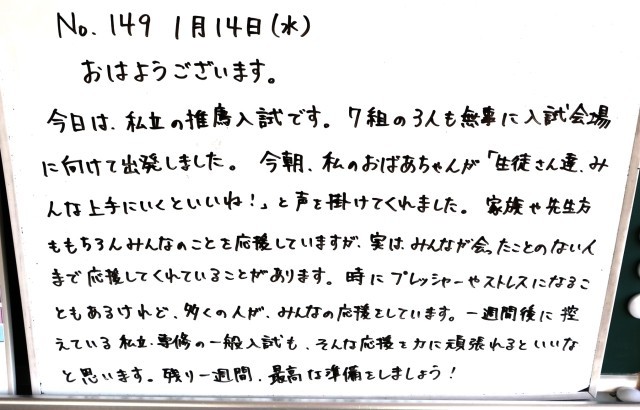 No. 149 1月14日(水)
おはようございます。
今日は、私立の推薦入試です。7組の3人も無事に入試会場
に向けて出発しました。今朝、私のおばあちゃんが「生徒さん達、み
んな上手にいくといいね!」と声を掛けてくれました。家族や先生方
ももちろんみんなのことを応援していますが、実は、みんなが会ったことのない人
まで応援してくれていることがあります。時にプレッシャーやストレスになるこ
ともあるけれど、多くの人が、みんなの応援をしています。一週間後に控
えている私立・専修の一般入試も、そんな応援を力に頑張れるといいな
と思います。残り一週間、最高な準備をしましょう!